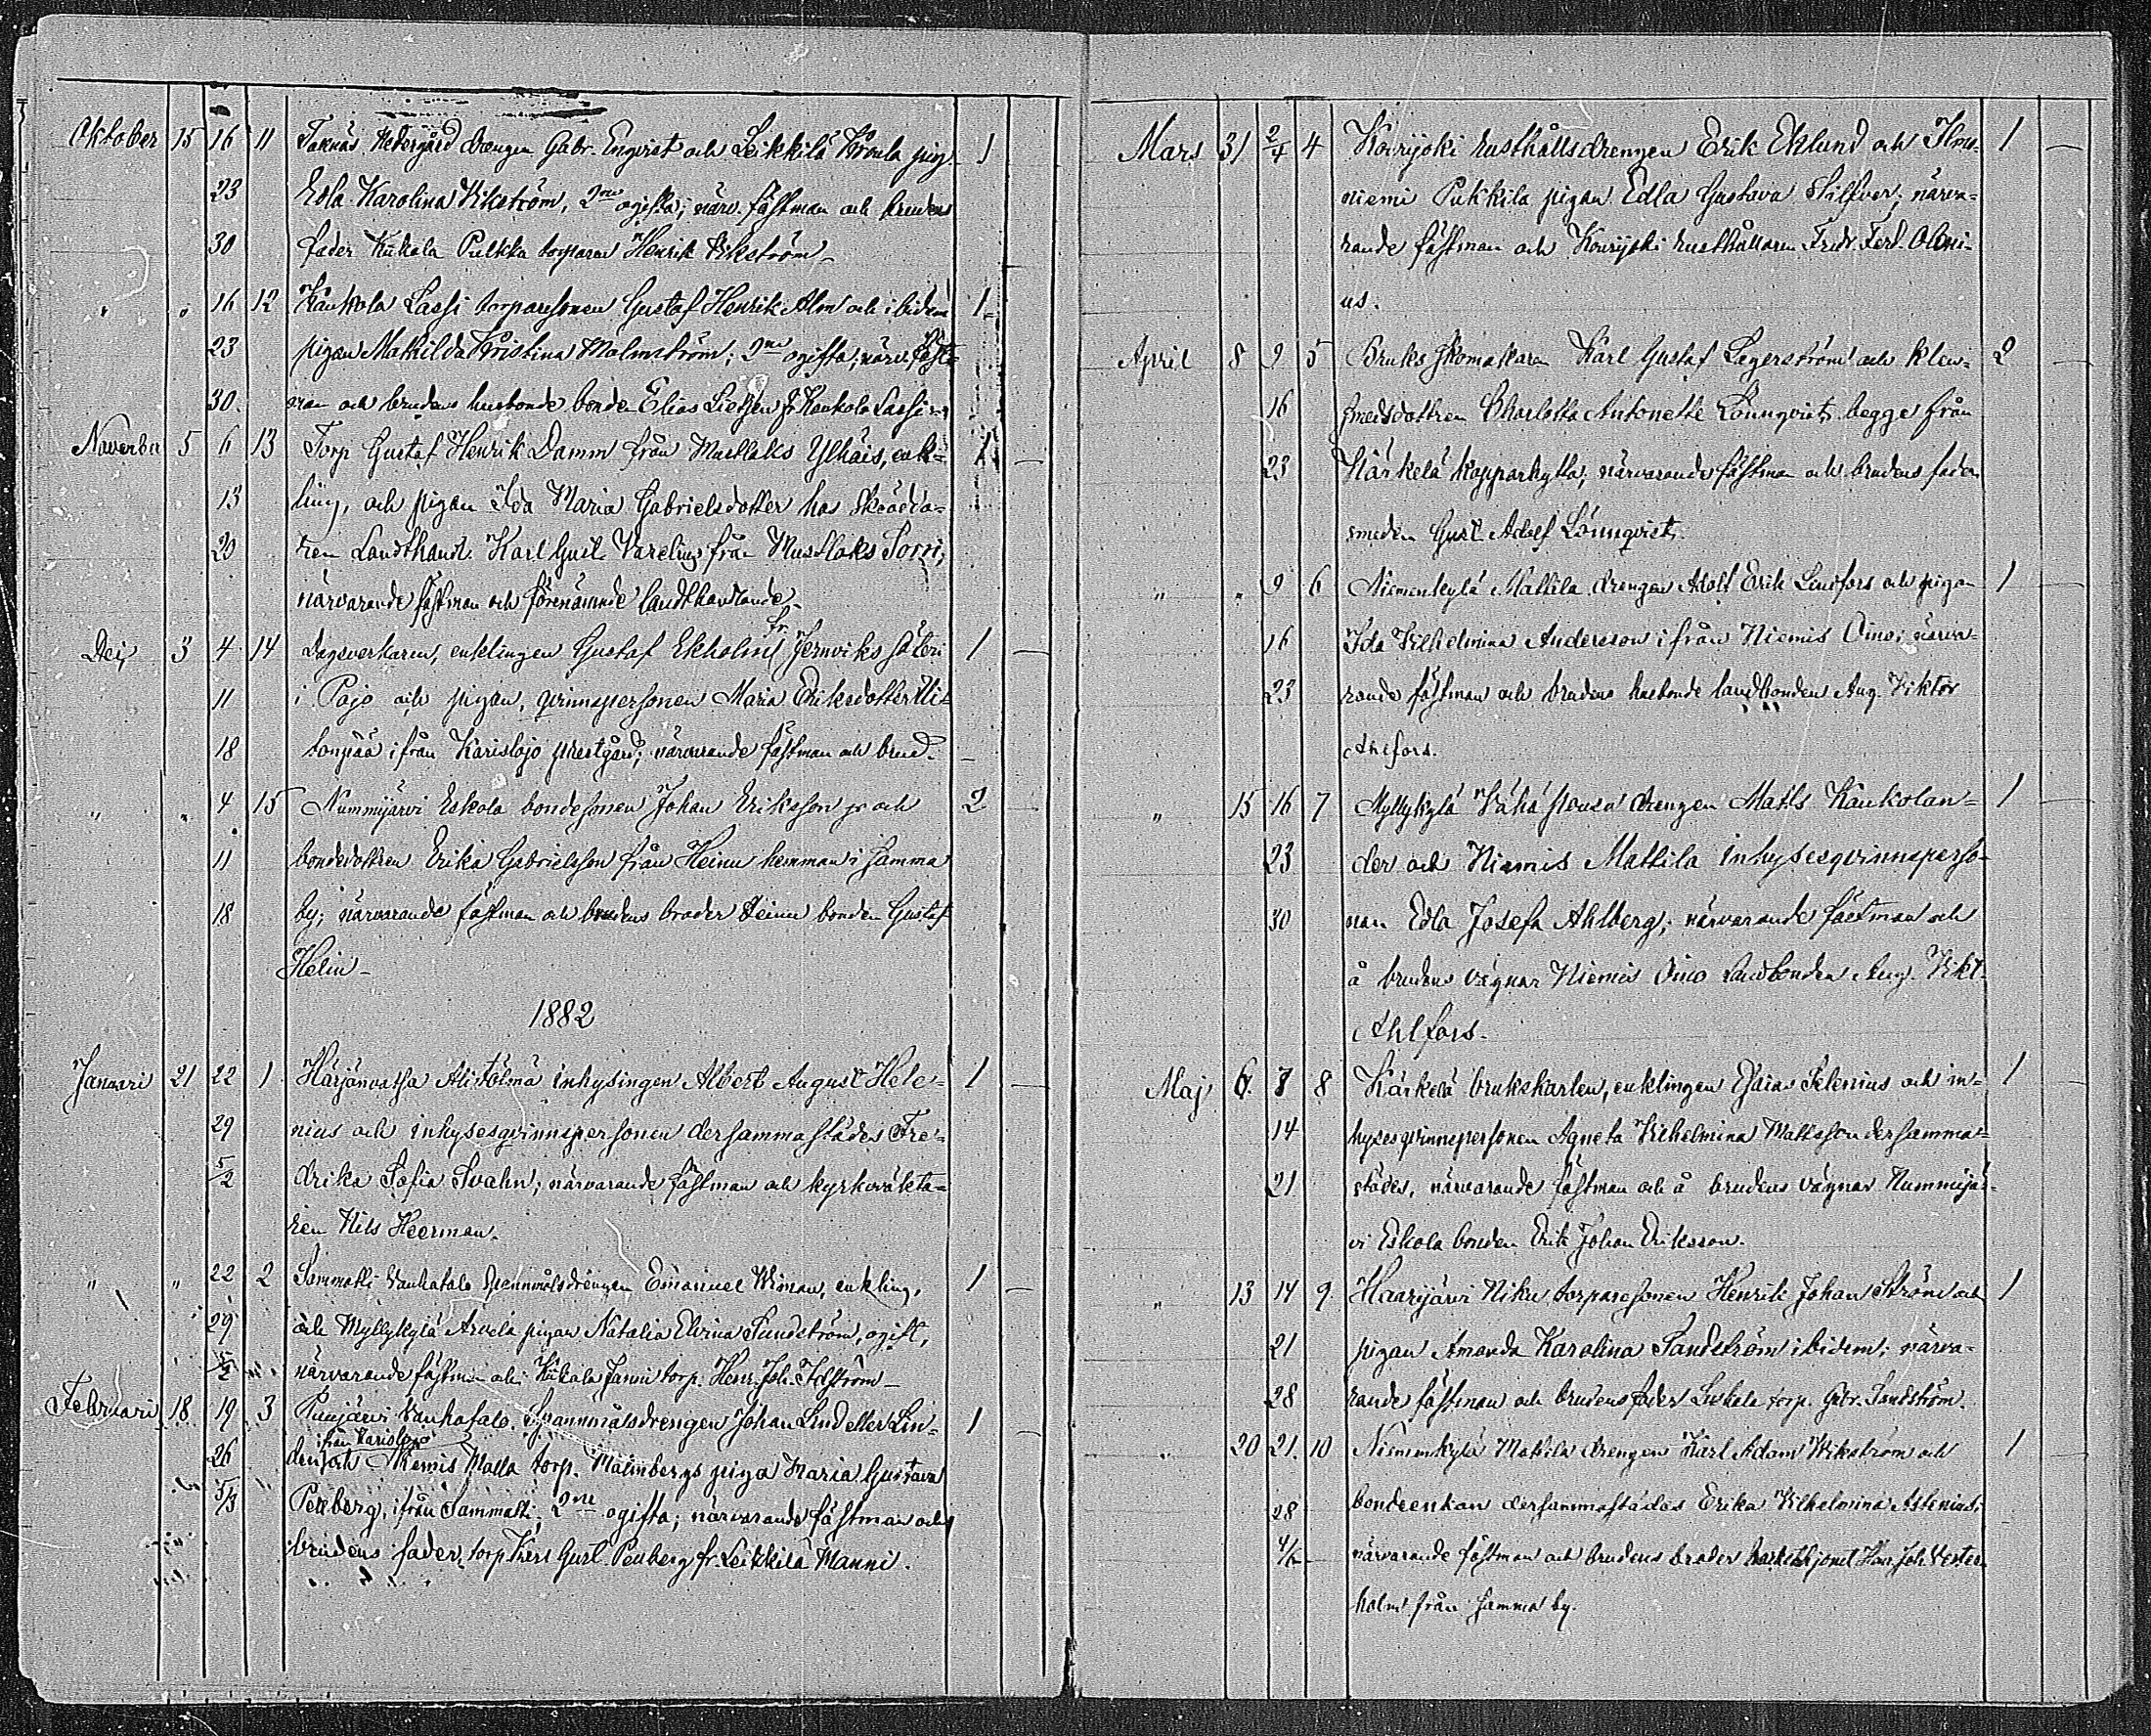 Oktober 15 16 11 Taknäs Nedergård drengen Gabr. Enqvist och Leikkilä Kroula pig. 1
23 Edla Karolina Vikström, 2ne ogifta; närv. fästman och brudens
30 fader Kukola Pulkka torparen Henrik Vikström
" " 16 12 Kaukola Lassi torparesonen Gustaf Henrik Alm och ibidem 1
23 pigan Mathilda Kristina Malmström; 2ne ogifta; närv. fäst-
30. man och brudens husbonde bonden Elias fr Kaukola Lassi
November 5 6 13 Torp Gustaf Henrik Damm från Mustlaks Ylhäis, enk- 1
13 ling, och pigan Ida Maria Gabrielsdotter hos skrädda-
20 ren Landthandl. Karl Gust. Varelius från Mustlaks Sorri;
närvarande fästman och förenämnde landthandlande
Dec 3 4 14 Dagsverkaren, enklingen Gustaf Ekholm fr Jernviks säteri 1
11 i Pojo och pigan, qvinnspersonen Maria Eriksdotter Ui-
18 tonpää ifrån Karislojo prestgård; närvarande fästman och brud.
" " 4 15 Nummijärvi Eskola bondesonen Johan Eriksson jr och 2
11 bondedottren Erika Gabrielsson från Heinu hemman i samma
18 by; närvarande fästman och brudens broder Heinu bonden Gustaf
Helin
1882
Januari 21 22 1 Härjänvatsa Alistölmä inhysingen Albert August Hele- 1
29 nius och inhysesqvinnspersonen dersammastädes Fre-
5/2 drika Sofia Svahn; närvarande fästman och kyrkoväkta-
ren Nils Heerman.
" " 22 2 Sammatti Vanhatalo spannmålsdrengen Emanuel Wiman, enkling, 1
29 och Myllykylä Arvela pigan Natalia Elvina Sundström, ogift,
5/2 närvarande fästman och Kukola Janni torp. Henr. Joh.
Februari 18 19 3 Puujärvi Vanhatalo Spannmålsdrengen Johan Lind eller Lin- 1
från Karislojo
26 den och Niemis Malla torp. Malmbergs piga Maria Gustava
5/3 Penberg, ifrån Sammatti; 2ne ogifta; närvarande fästman och
brudens fader, torp Gust. Penberg fr. Leikkilä Manni.
Mars 31 2/4 4 Kourjoki rusthållsdrengen Erik Eklund och Ilmo- 1
niemi Pukkila pigan Edla Gustava Silfver; närva-
rande fästman och Kourjoki rusthållaren Fredr. Ferd. Oloni-
us.
April 8 9 5 Bruks skomakaren Karl Gustaf Lagerström och klen- 2
16 smedsdottren Charlotta Antonette Lönnqvist, begge från
23 Kärkelä kopparhytta; närvarande fästman och brudens fader
smeden Gust. Adolf Lönnqvist.
" " 9 6 Niemenkylä Mattila drengen Adolf Erik Lindfors och pigan 1
16 Ida Vilhelmina Andersson ifrån Niemis Oino; närva-
23 rande fästman och brudens husbonde landbonden Aug. Viktor
Ahlfors.
" 15 16 7 Myllykylä Vähä drengen Matts Kaukolan- 1
23 der och Niemis Mattila inhysesqvinnsperso-
30 nan Edla Josefa Ahlberg; närvarande fästman och
å brudens vägnar Niemis Oino landbonden Aug. Vikt.
Ahlfors.
Maj 6. 7 8 Kärkelä brukskarlen, enklingen Esaias Selenius och in- 1
14 hysesqvinnspersonen Agneta Vilhelmina Mattsson dersamma-
21 städes, närvarande fästman och å brudens vägnar Nummijär-
vi Eskola bonden Erik Johan Eriksson.
" 13 14 9. Haarijärvi Niku torparesonen Henrik Johan Ström och 1
21 pigan Amanda Karolina Sandström ibidem; närva-
28 rande fästman och brudens fader torp. Gabr. Sandström.
" 20 21. 10 Niemenkylä Mattila drengen Karl Adam Wikström och 1
28 bondeenkan dersammastädes Erika Vilhelmina
4/6 närvarande fästman och brudens broder Hen. Joh. Vester-
holm från samma by.